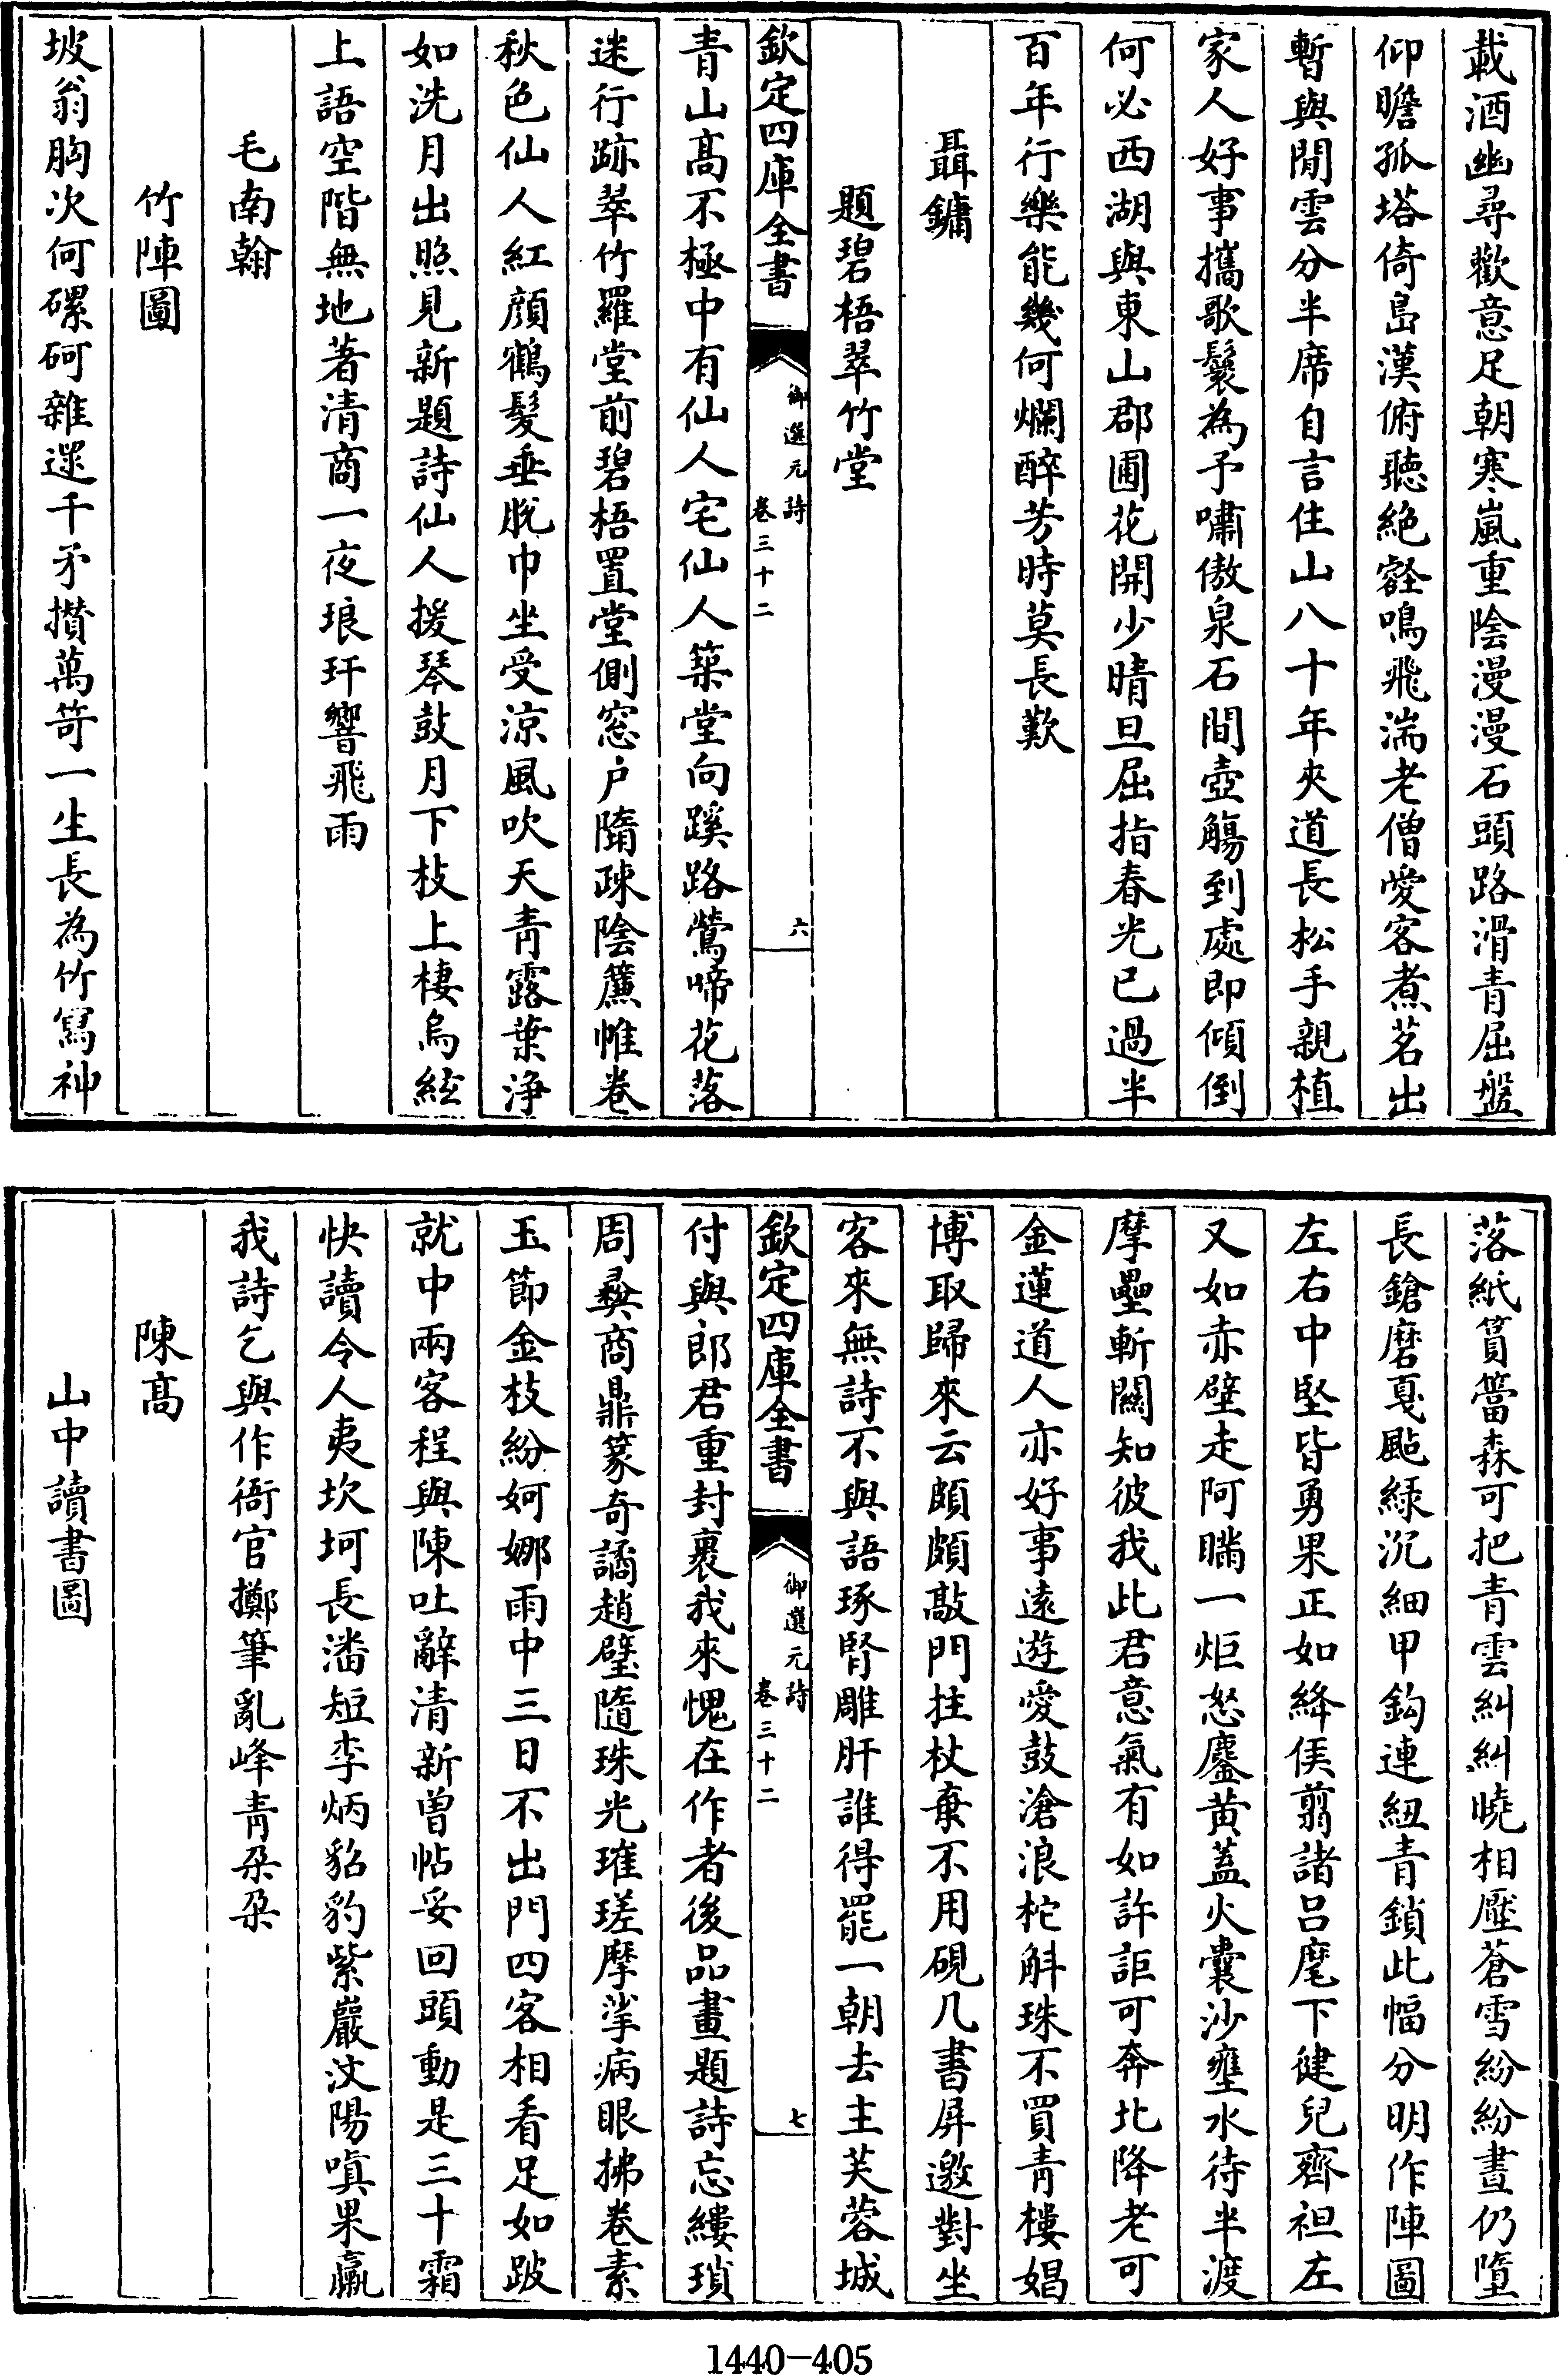 載酒幽尋歡意足朝寒嵐重陰漫漫石頭路滑青屈盤
仰瞻孤塔倚島漢俯聽絶壑鳴飛湍老僧愛客煮茗出
暫與閒雲分半席自言住山八十年夾道長松手親植
家人好事攜歌鬟為予嘯傲泉石間壺觴到處即傾倒
何必西湖與東山郡圃花開少晴旦屈指春光已過半
百年行樂能幾何爛醉芳時莫長歎
聶鏞
題碧梧翠竹堂
欽定四庫全書
御選元詩
卷三十二
六
青山髙不極中有仙人宅仙人築堂向蹊路鶯啼花落
迷行跡翠竹羅堂前碧梧置堂側窓户隋疎陰簾帷卷
秋色仙人紅顔鶴髮垂脱巾坐受涼風吹天青露葉浄
如洗月出照見新題詩仙人援琴鼓月下枝上棲烏絃
上語空階無地著清商一夜琅玕響飛雨
毛南翰
竹陣圖
坡翁胸次何磥砢雜遝千矛攢萬笴一生長為竹寫神
落紙篔簹森可把青雲糾糾曉相壓蒼雪紛紛晝仍墮
長鎗磨戛颭緑沉細甲鈎連紐青鎖此幅分明作陣圖
左右中堅皆勇果正如絳侯翦諸吕麾下健兒齊袒左
又如赤壁走阿瞞一炬怒鏖黄蓋火囊沙壅水待半渡
摩壘斬關知彼我此君意氣有如許詎可奔北降老可
金蓮道人亦好事逺遊愛鼓滄浪柁斛珠不買青樓娼
博取歸來云頗頗敲門拄杖棄不用硯几書屏邀對坐
客來無詩不與語琢腎雕肝誰得罷一朝去主芙蓉城
欽定四庫全書
御選元詩
卷三十二
七
付與郎君重封裹我來愧在作者後品畫題詩忘縷瑣
周彝商鼎篆竒譎趙璧隨珠光璀瑳摩挲病眼拂卷素
玉節金枝紛妸娜雨中三日不出門四客相看足如跛
就中兩客程與陳吐辭清新曽帖妥回頭動是三十霜
快讀令人夷坎坷長潘短李炳貂豹紫巖汶陽嗔果蠃
我詩乞與作衙官擲筆亂峰青朵朵
陳髙
山中讀書圖
1440-405